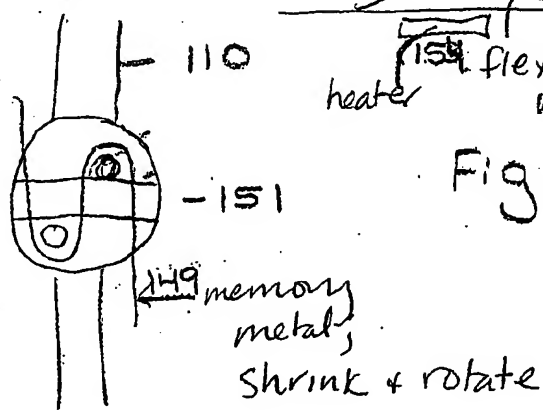 110
154 flex
heater
Fig
-151
149 memory
metal,
shrink & rotate